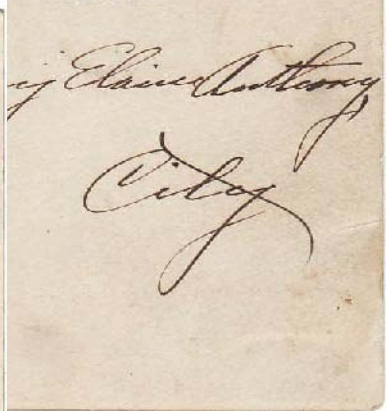 Elaine Anthony
City